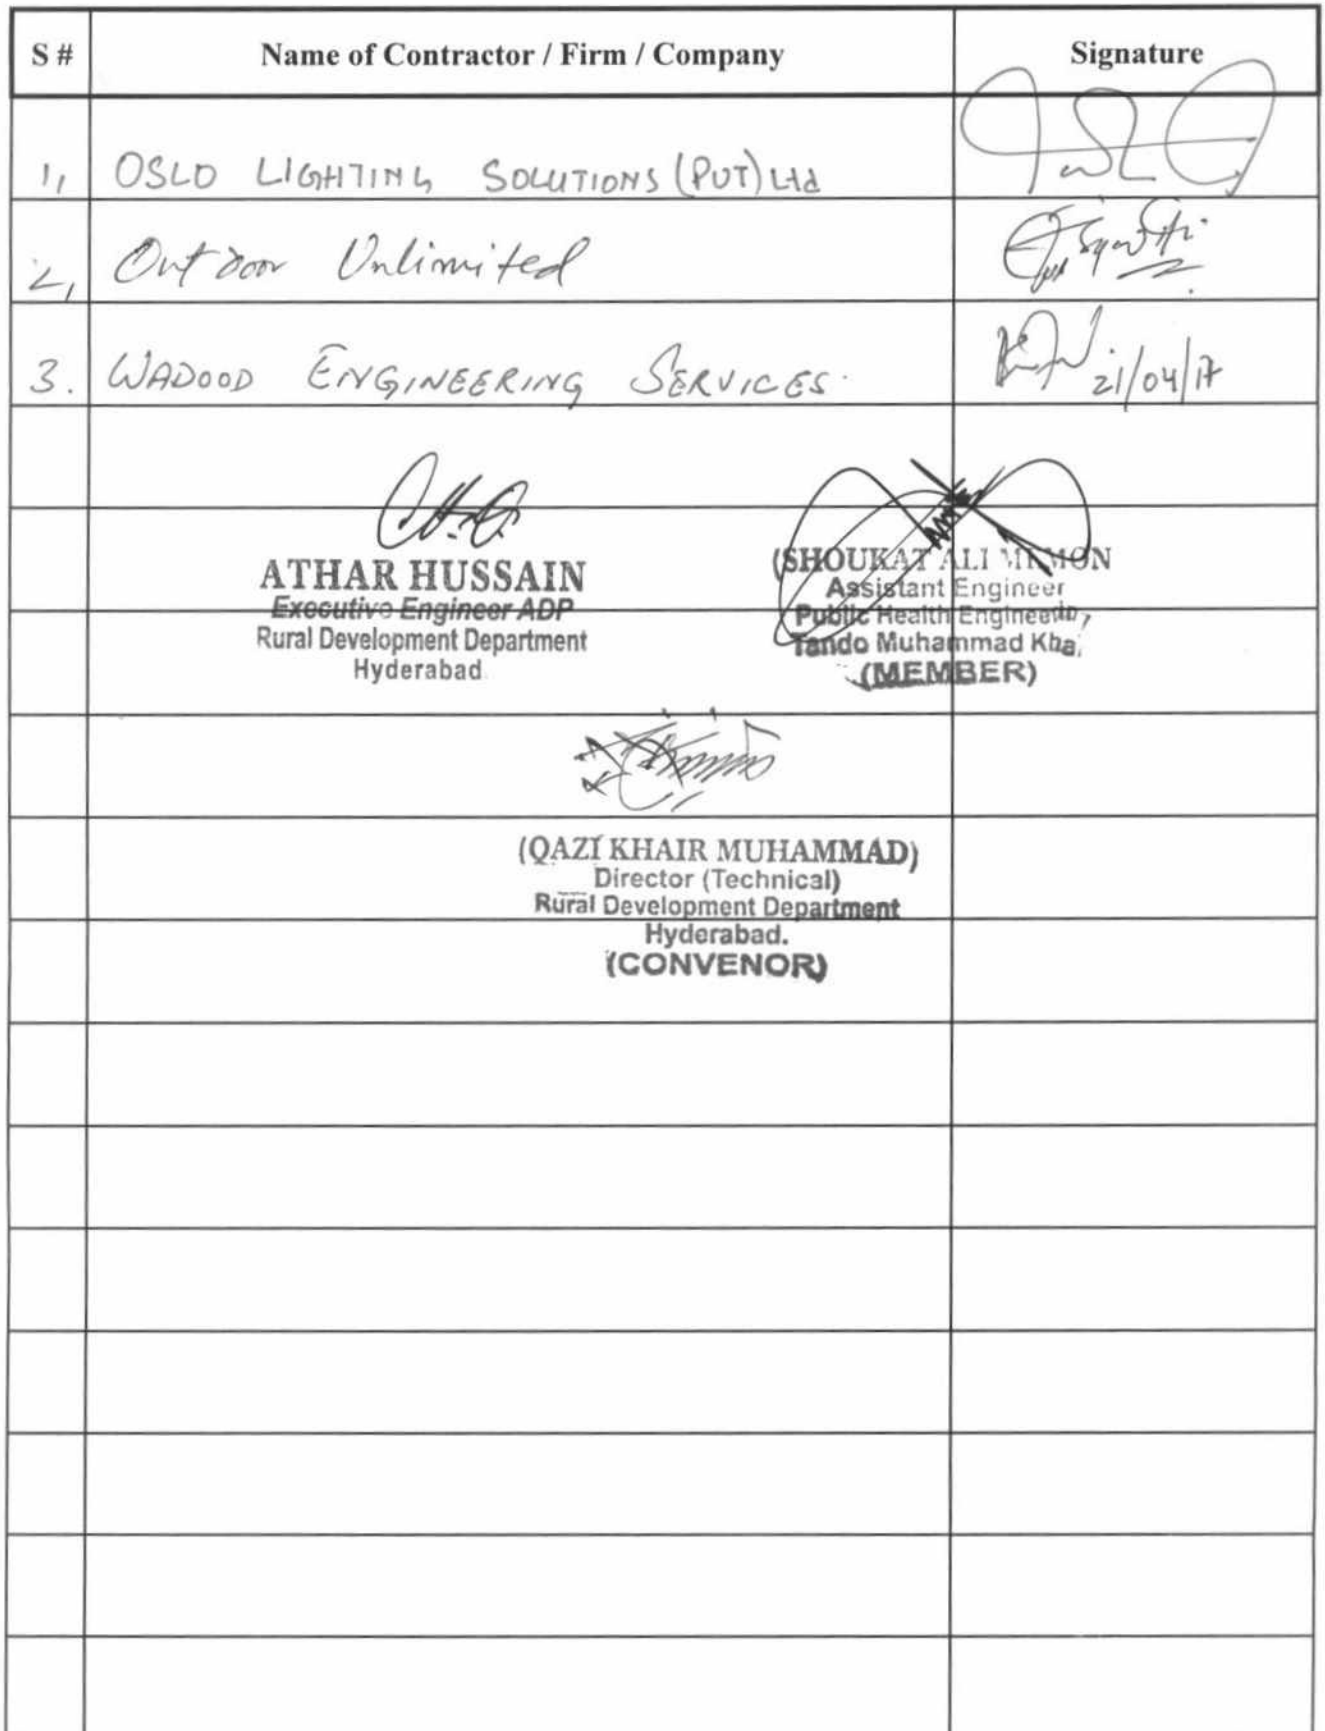 S # Name of Contractor / Firm / Company Signature
1, OSLO LIGHTING SOLUTIONS (PVT) Ltd
2, Outdoor Unlimited
3. WADOOD ENGINEERING SERVICES. 21/04/17
ATHAR HUSSAIN
Executive Engineer ADP
Rural Development Department
Hyderabad
(SHOUKAT ALI MEMON
Assistant Engineer
Public Health Engineerin
Tando Muhammad Kha
(MEMBER)
(QAZI KHAIR MUHAMMAD)
Director (Technical)
Rural Development Department
Hyderabad.
(CONVENOR)